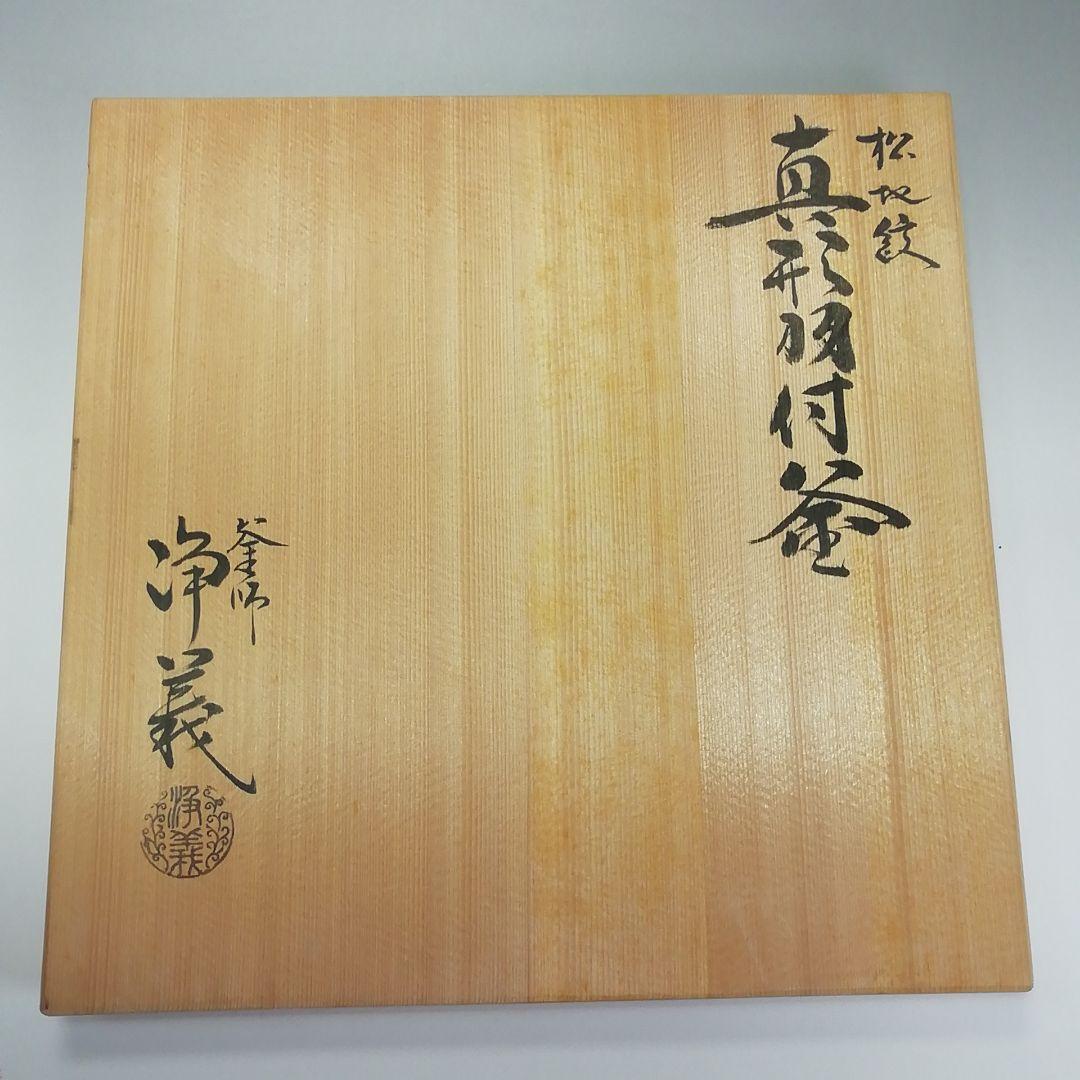 松地紋
真形羽付釜
釜師
浄義
浄義